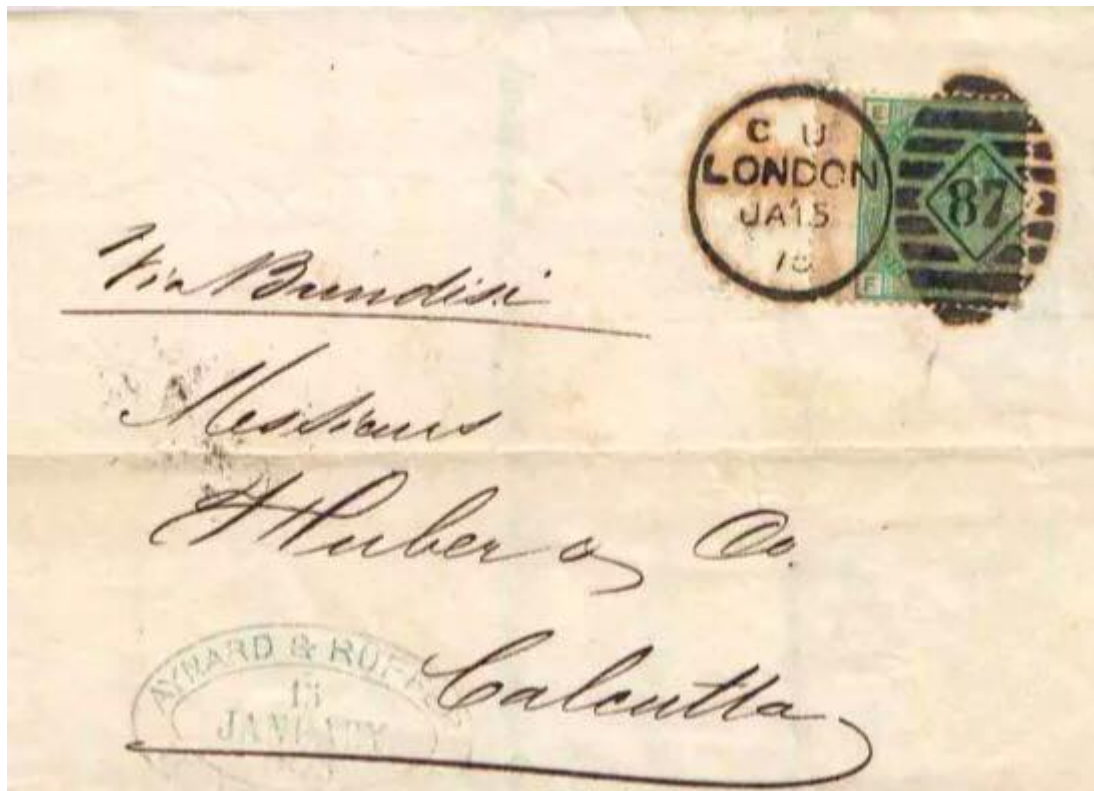 C U
LONDON
JA 15
78
E
87
F
Via Brindisi
Messieurs
Huber & Co.
Calcutta
AYNARD & RUFFER
15
JANUARY